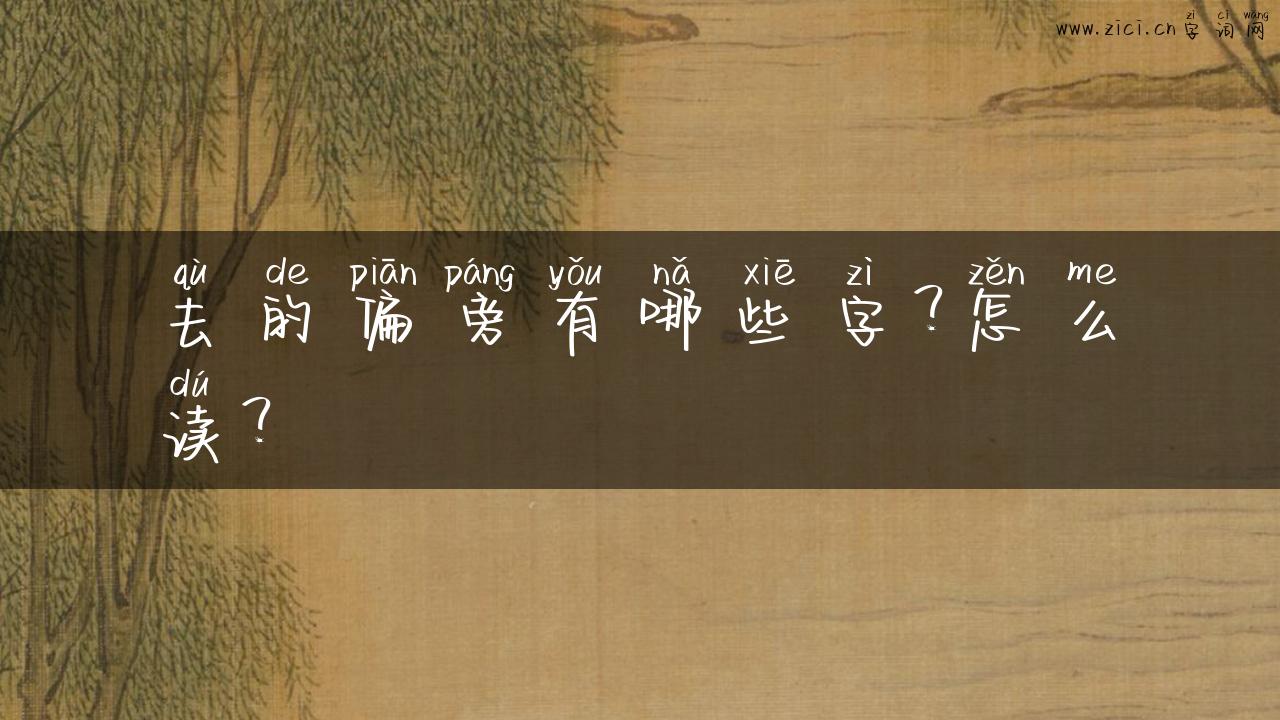 zì cí wǎng
www.zici.cn字词网
qù de piān páng yǒu nǎ xiē zì zěn me
去的偏旁有哪些字？怎么
dú
读？